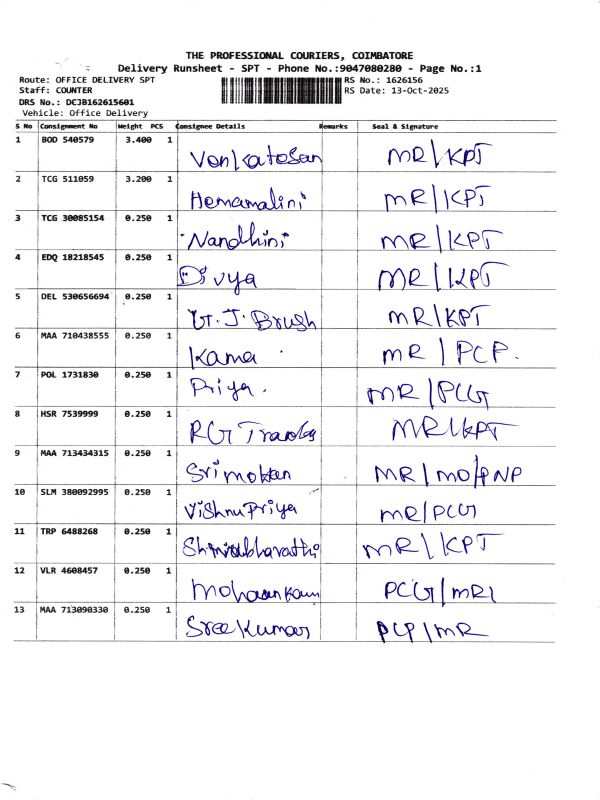 THE PROFESSIONAL COURIERS, COIMBATORE
Delivery Runsheet - SPT - Phone No.:9047080280 - Page No.:1
Route: OFFICE DELIVERY SPT RS No.: 1626156
Staff: COUNTER RS Date: 13-Oct-2025
DRS No.: DCJB162615601
Vehicle: Office Delivery
S No Consignment No Weight PCS Consignee Details Remarks Seal & Signature
1 BOD 540579 3.400 1 Venkatesan MR/KPT
2 TCG 511059 3.200 1 Hemamalini MR/KPT
3 TCG 30085154 0.250 1 Nandhini MR/KPT
4 EDQ 18218545 0.250 1 Divya MR/KPT
5 DEL 530656694 0.250 1 J. Brush MR/KPT
6 MAA 710438555 0.250 1 Kama MR/PCP.
7 POL 1731830 0.250 1 Priya. MR/PCG
8 HSR 7539999 0.250 1 RG MR/KPT
9 MAA 713434315 0.250 1 Srimohan MR/MO/PNP
10 SLM 380092995 0.250 1 VishnuPriya MR/PCG
11 TRP 6488268 0.250 1 MR/KPT
12 VLR 4608457 0.250 1 PCG/MR
13 MAA 713090330 0.250 1 Sreekumar PCP/MR